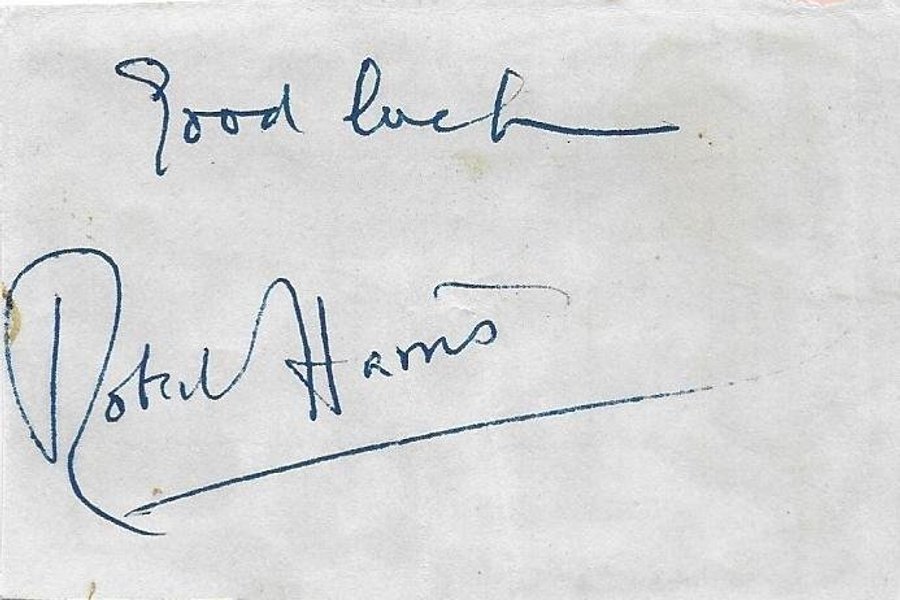 Good luck
Robert Harris